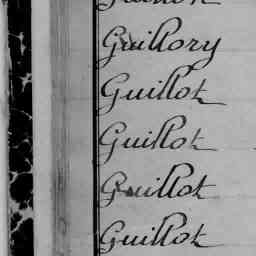 Guillory
Guillot
Guillot
Guillot
Guillot